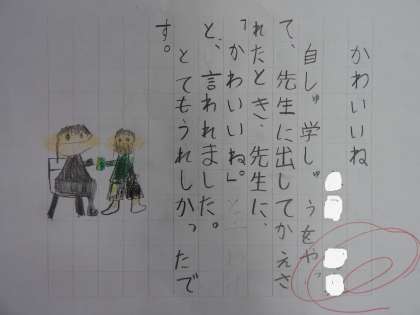 かわいいね
自しゅ学しゅうをやっ
て、先生に出してかえさ
れたとき、先生に、
「かわいいね。」
と、言われました。
とてもうれしかったで
す。